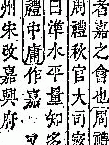 者嘉之會也周禮
周禮秋官大司寇
曰準水平量如名
禮中庸作嘉
州朱改嘉興府